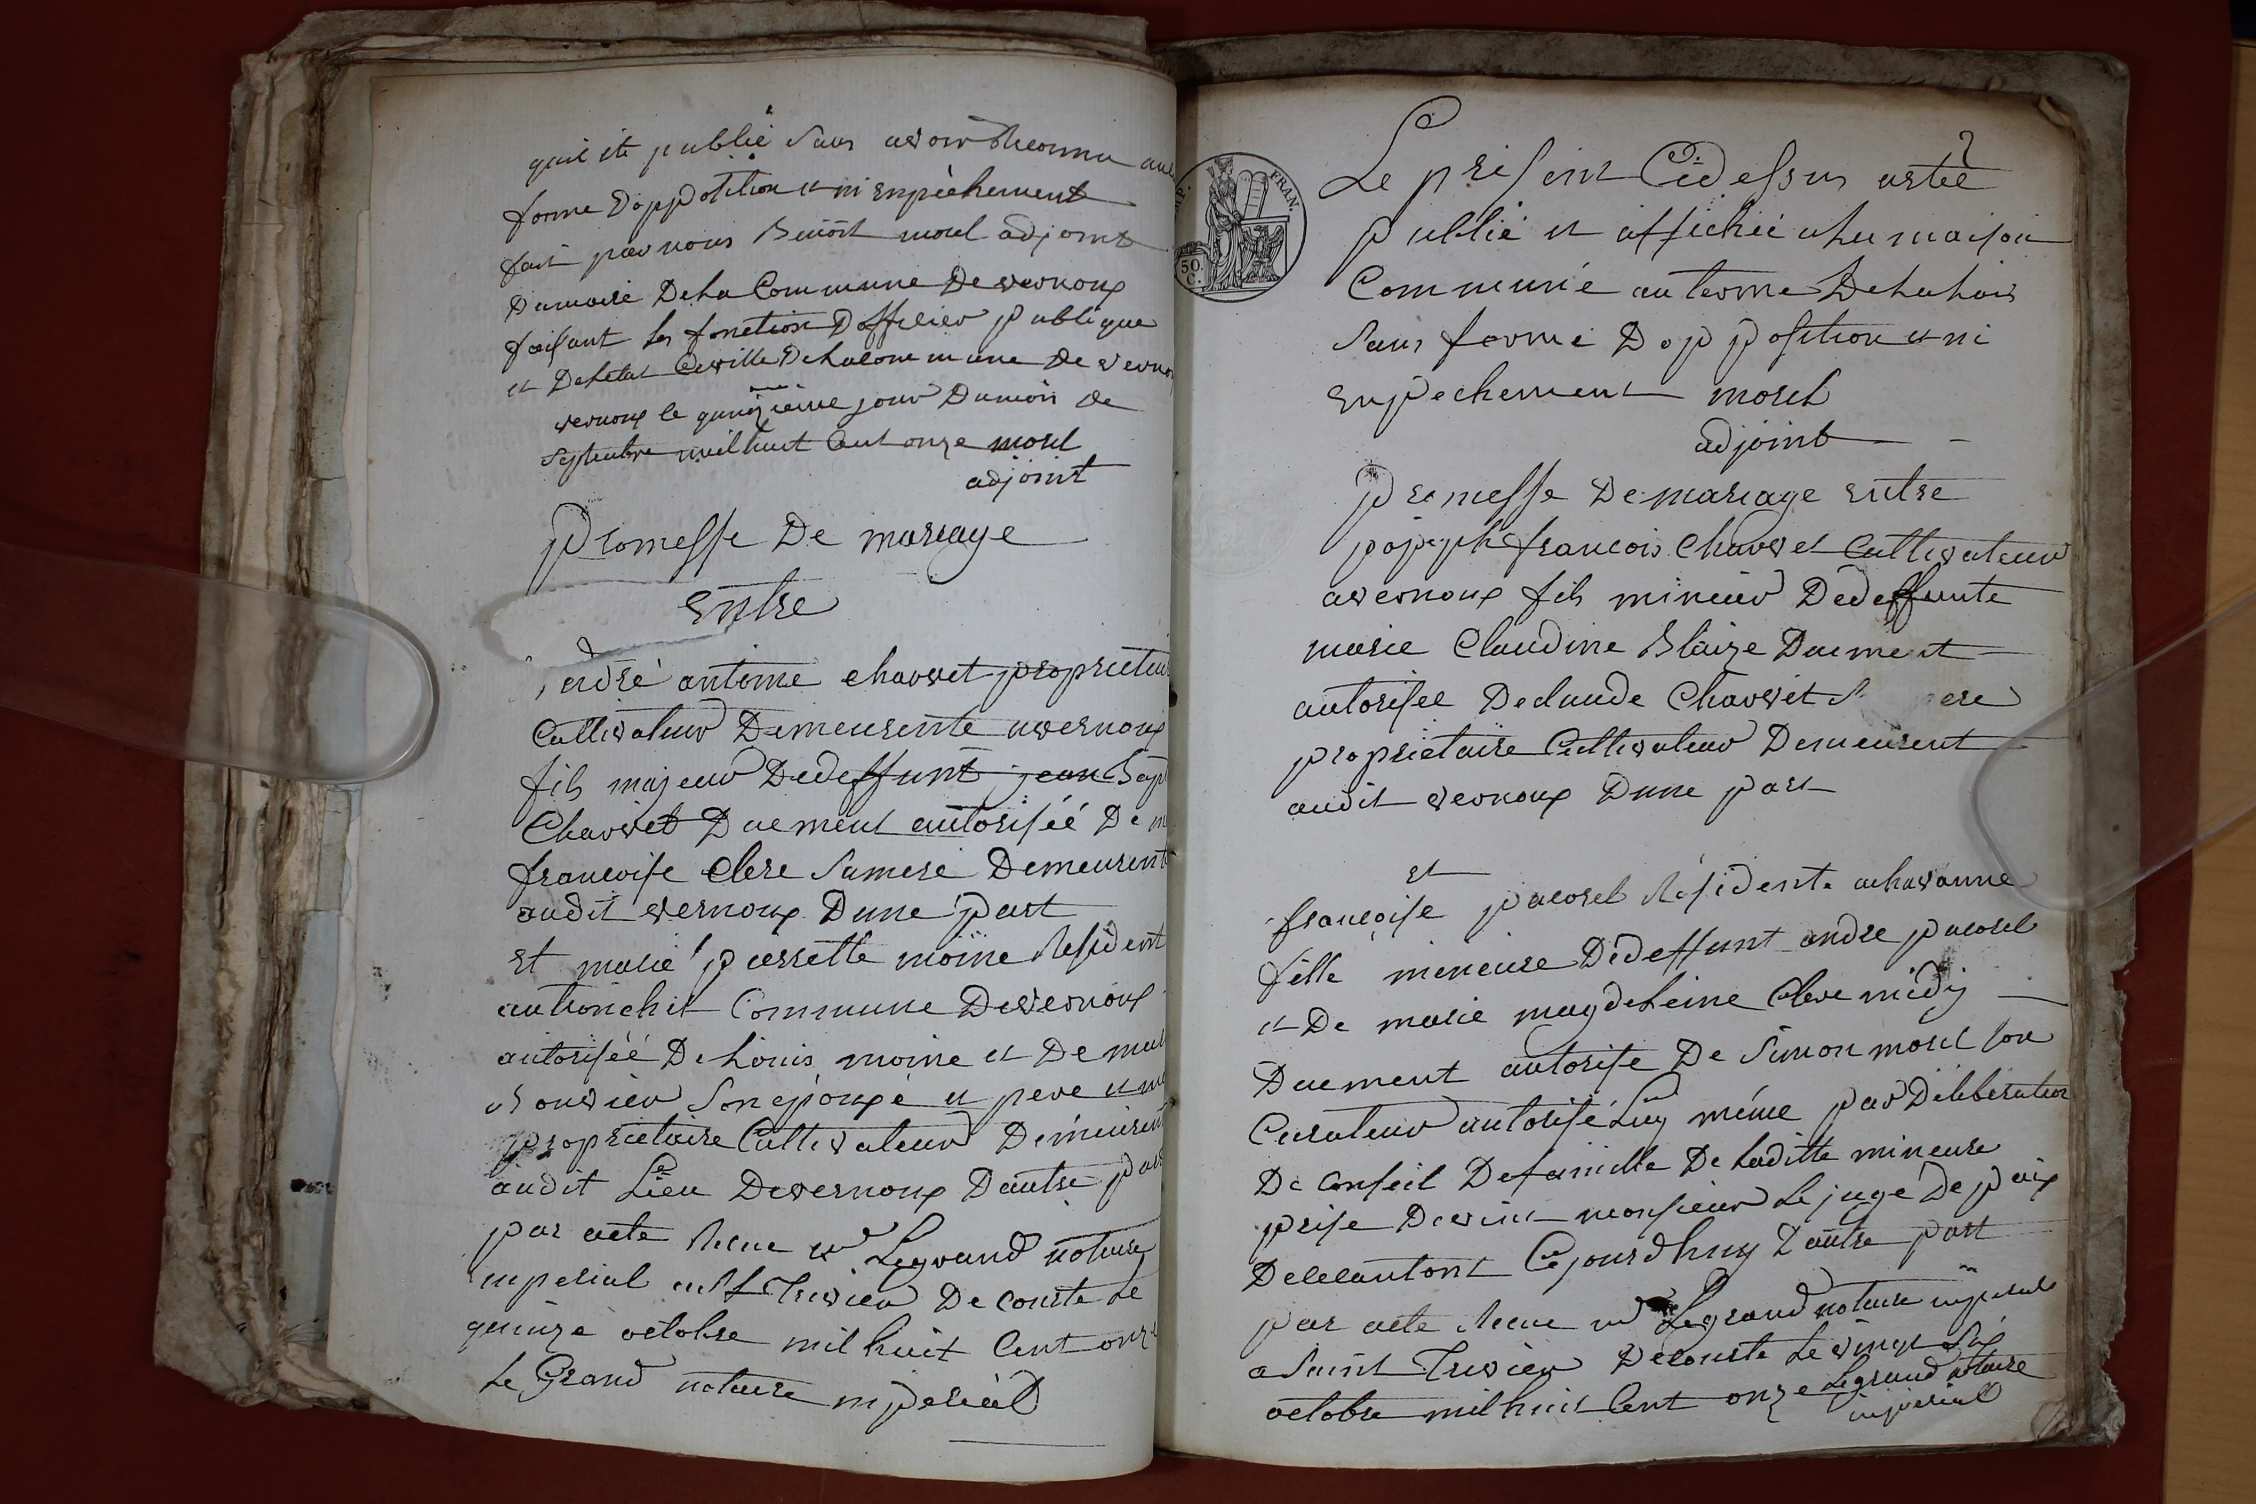 quil été publié sans avoir Reconnu
forme Dopposition et ni enpèchement
fait par nous Benoit morel adjoint
Dumaire Dela Commune De vernoux
faisant les fonction Dofficier publique
et Deletat Ceville Delacommune De
vernoux le quinzieme jour Dumois de
septembre mil huit Cent onze morel
adjoint
promesse De mariage
entre
andré antoine charvet proprietai
Cultivateur Demeurente avernoux
fils majeur Dedeffunt jean Bap
Charvet Duement autorisée De
francoise Clere Samere Demeurent
audit vernoux Dune part
et marie pierrette moine Resident
autronchet Commune Devernoux
autorisée De Louis moine et De
son epouse et pere et
proprietaire Cultivateur Demeurent
audit Lieu Devernoux Dautre par
par acte Recue Legrand notaire
inperial a St Trivier De courte Le
quinze octobre mil huit Cent onze
Le Grand notaire inperial
IMP. FRAN.
50. C.
Le present Cidessus asteé
publié et affiché a La maison
Commune auterme DelaLois
sans forme Dopposition et ni
enpechement morel
adjoint
promesse De mariage entre
francois Charvet Cultivateur
avernoux fils mineur Dedeffunte
marie Claudine Blaize Duement
autorisee Declaude Charvet ere
proprietaire Cultivateur Demeurent
audit vernoux Dune part
et
francoise pacorel Résidente achavanne
fille mineure Dedeffunt andre pacorel
et De marie magdeleine Clere
Duement autorise De Simon morel son
Curateur autorisé Luy méme par Déliberation
De Conseil Defamille De Laditte mineure
prise Devint monsieur Le juge De paix
Dececantont Cejourdhuy Dautre part
par acte Recue Legrand notaire inperial
a Saint Trivier Decourte Le vingt six
octobre mil huit Cent onze Legrand notaire
inperial